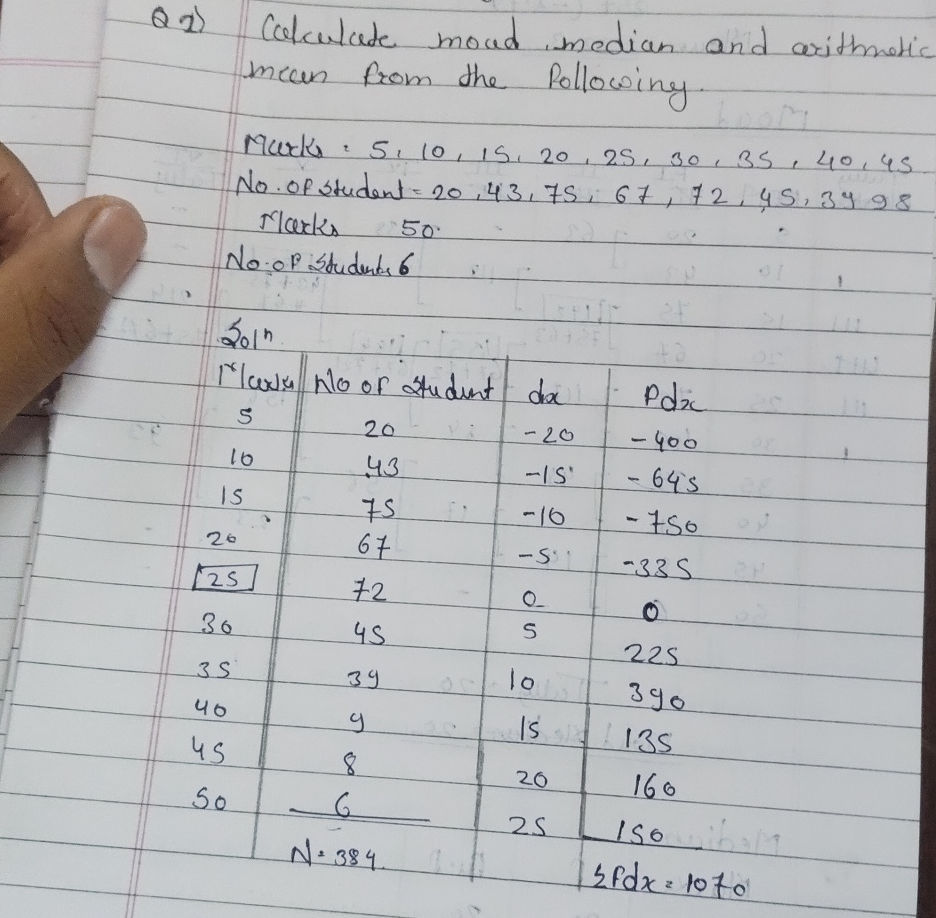 Q 2) Calculate moad, median and arithmetic
mean from the following.
Marks : 5, 10, 15, 20, 25, 30, 35, 40, 45
No. of student = 20, 43, 75, 67, 72, 45, 39 9 8
Marks 50
No. of students 6
Soln
Marks No of student dx fdx
5 20 -20 -400
10 43 -15 -645
15 75 -10 -750
20 67 -5 -335
25 72 0 0
30 45 5 225
35 39 10 390
40 9 15 135
45 8 20 160
50 6 25 150
N = 384 Σfdx = 1070